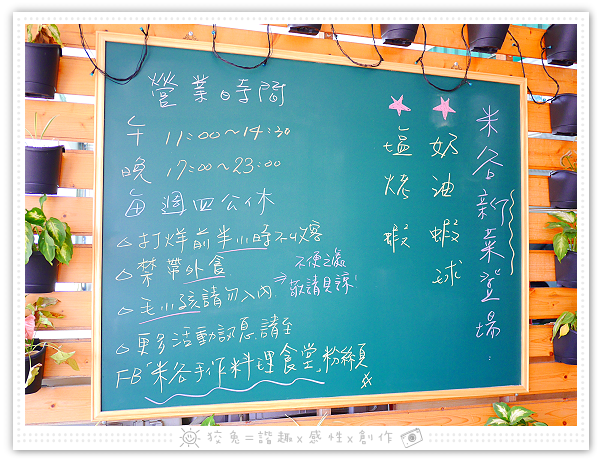 營業時間
午 11:00~14:30
晚 17:00~23:00
每週四公休
△打烊前半小時不收客
△禁帶外食
△毛小孩請勿入內 → 不便之處 敬請見諒!
△更多活動訊息請至
FB"米谷手作料理食堂"粉絲頁
米谷新菜登場:
★奶油蝦球
★塩烤蝦
狡兔=諧趣x感性x創作